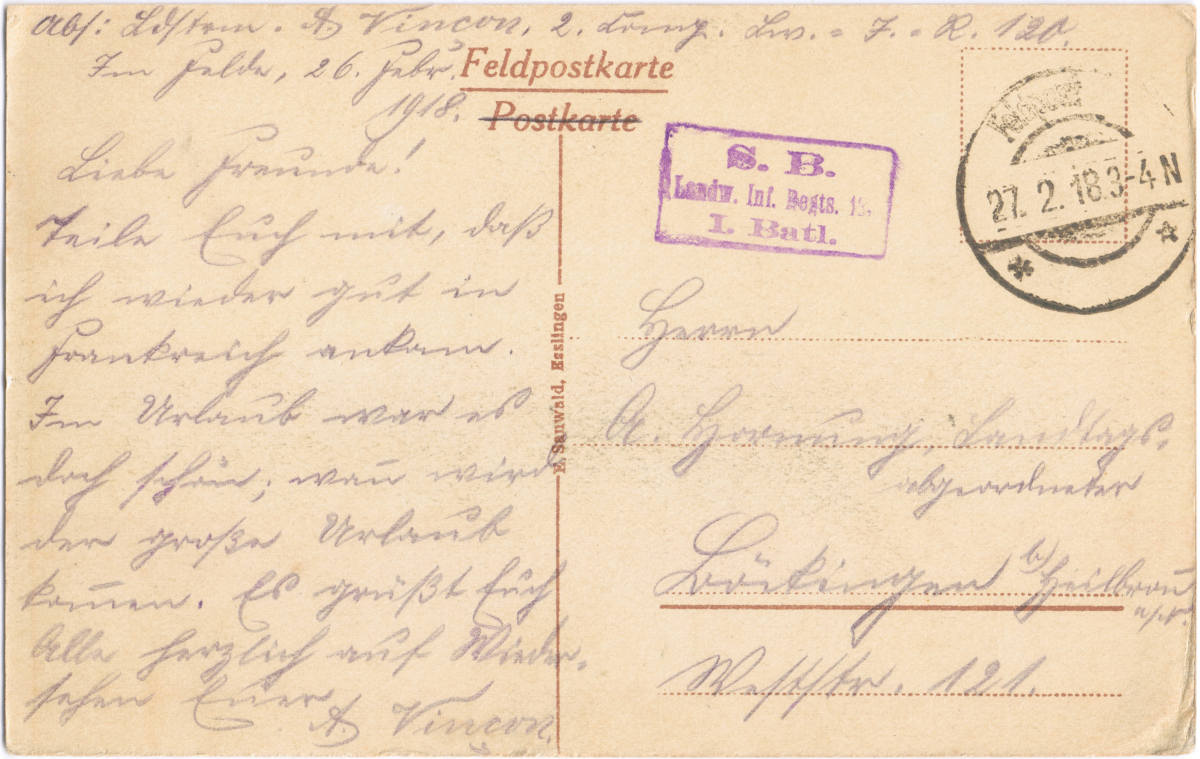 Abs: Ldstrm. A. Vinçon, 2. Komp. Lw.-I.-R. 120.
Im Felde, 26. Febr.
1918.
Feldpostkarte
Postkarte
Liebe Freunde!
Teile Euch mit, daß
ich wieder gut in
Frankreich ankam.
Im Urlaub war es
doch schön; wan̄ wird
der große Urlaub
kom̄en. Es grüßt Euch
Alle herzlich auf Wieder-
sehen Euer
A. Vinçon.
F. Sanwald, Esslingen
S. B.
Landw. Inf. Regts.
I. Batl.
27. 2. 18 3-4 N
Herrn
A. Hornung, Landtags-
abgeordneter
Böckingen b/ Heilbron̄
a/N.
Weststr. 121.